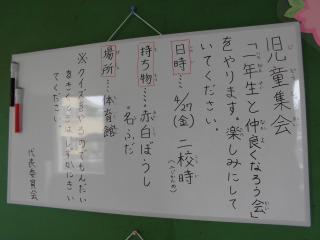 児童集会
「一年生と仲良くなろう会」
をやります。楽しみにして
いてください。
日時……4/27(金) 二校時
持ち物……赤白ぼうし
名ふだ
場所……体育館
※クイズをやるのでもんだい
をきくときはしずかにきい
てください。
代表委員会